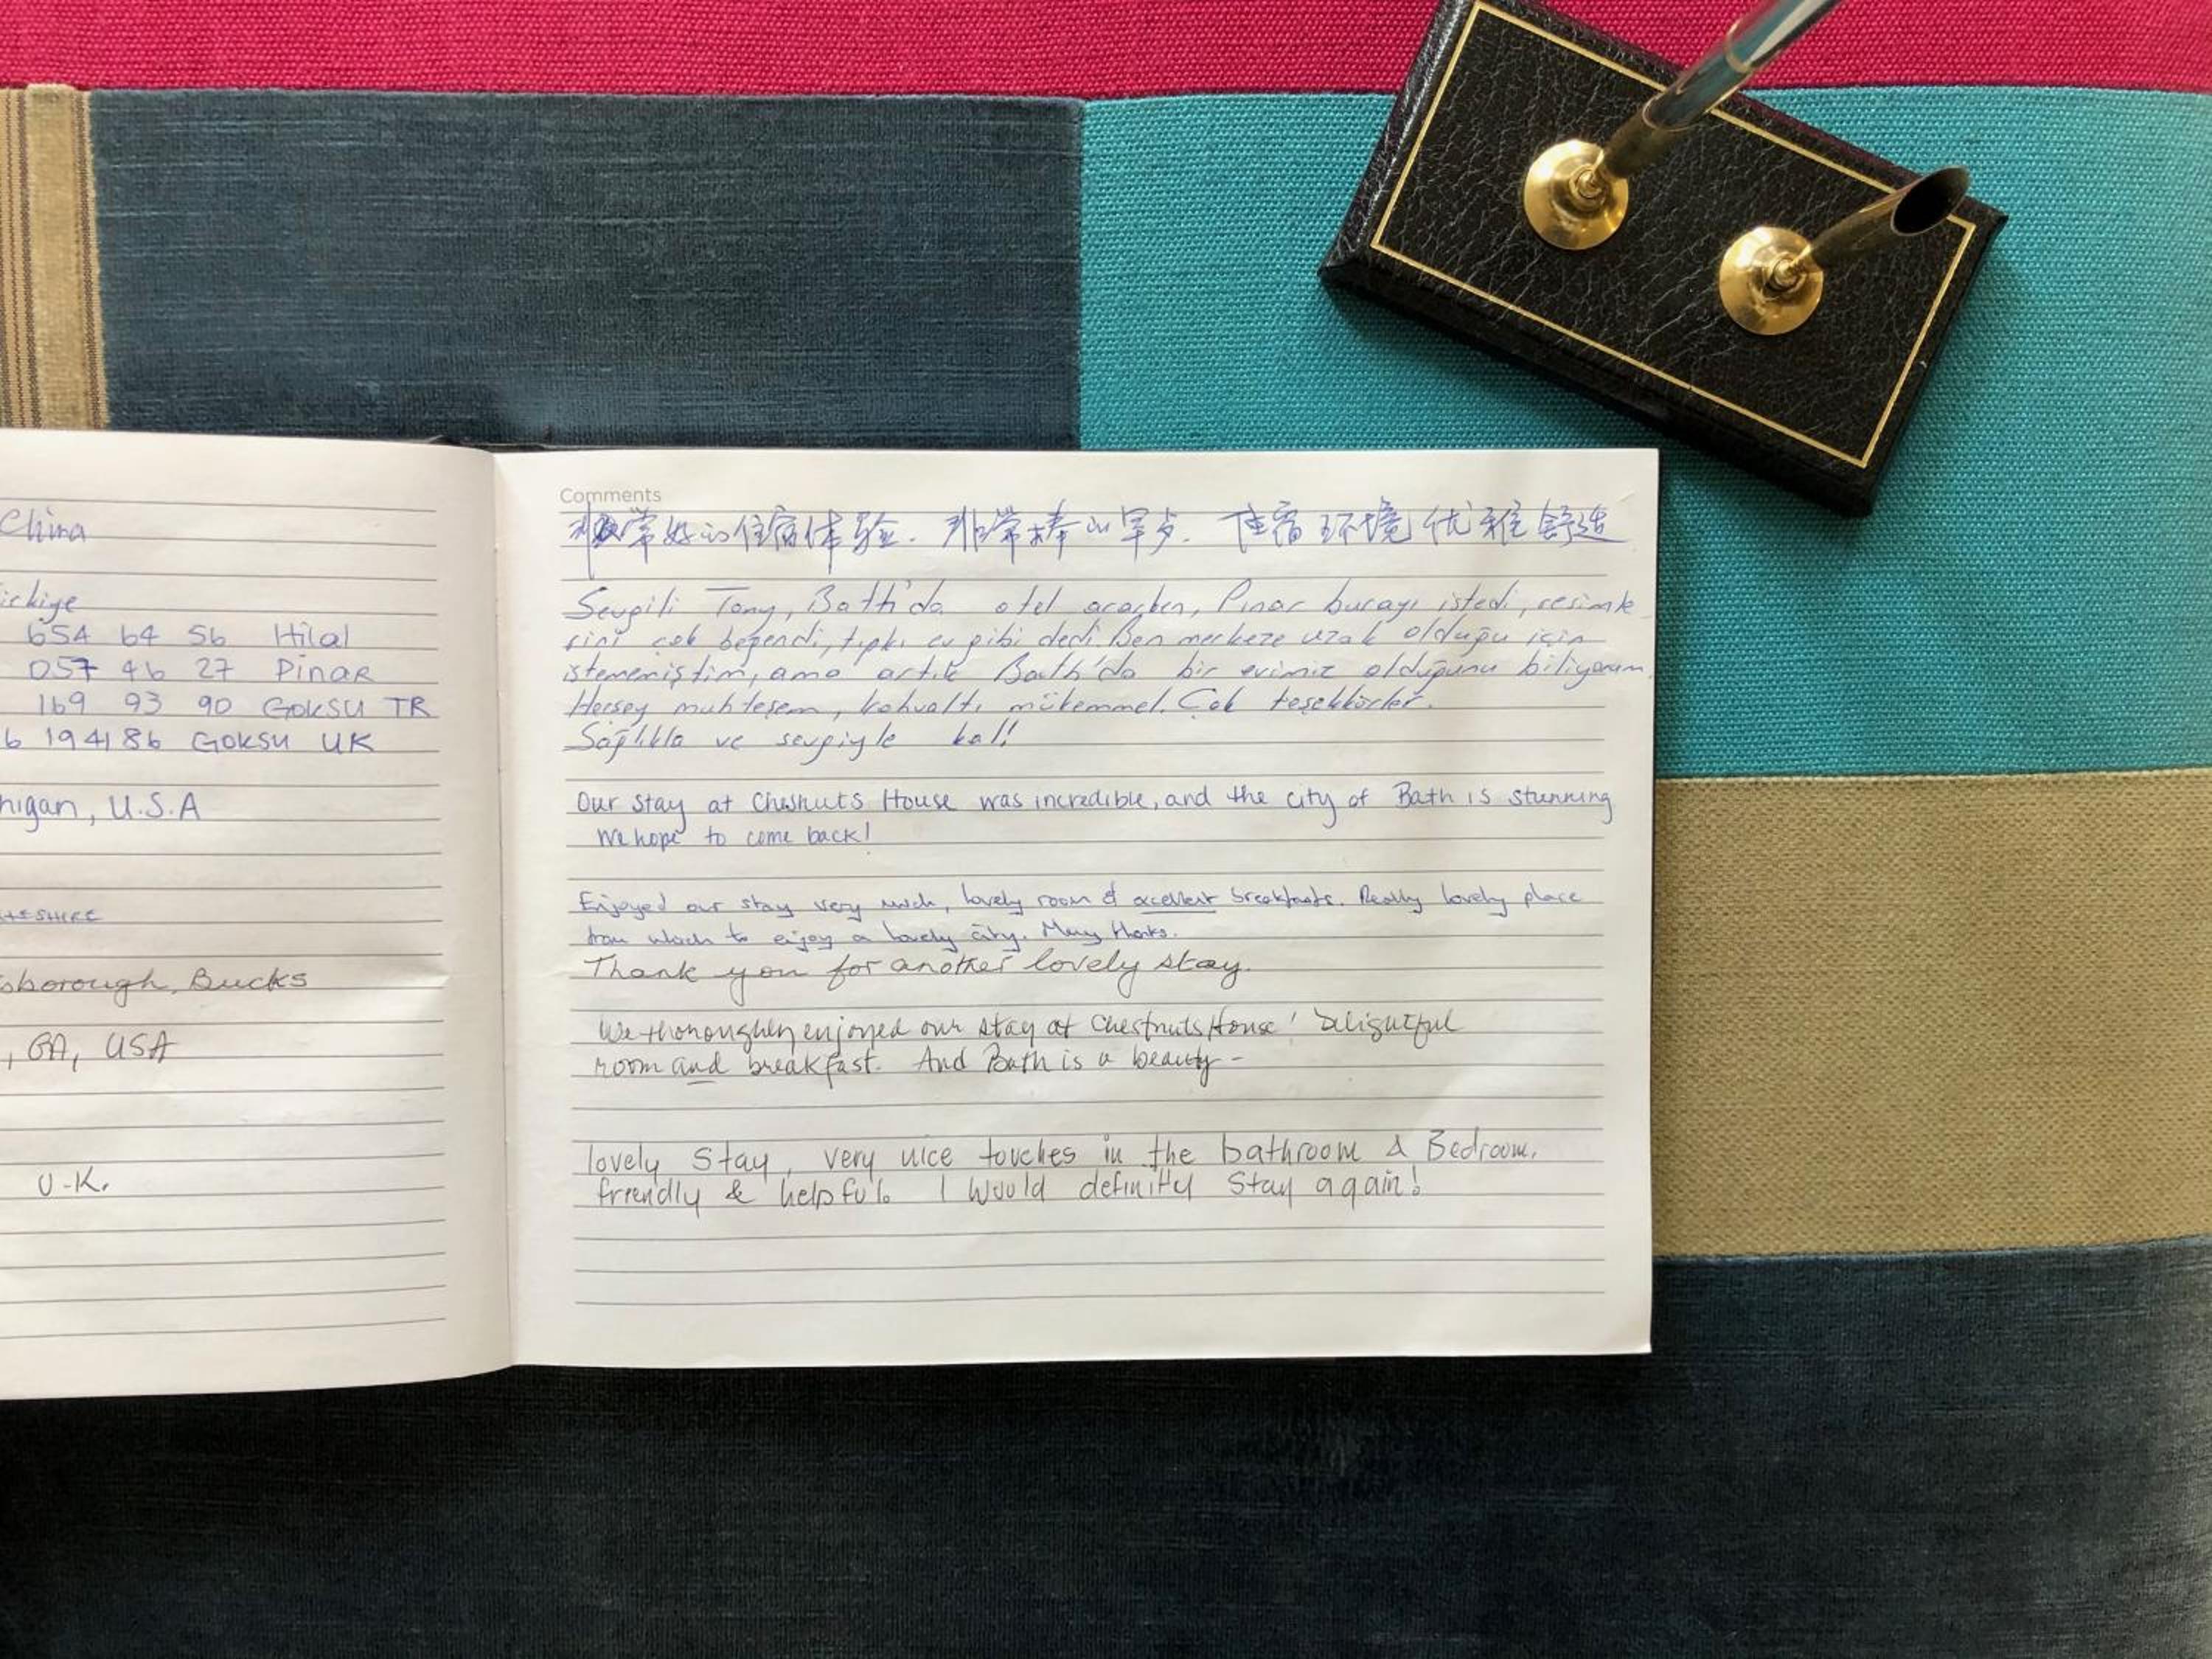 China
654 64 56 Hilal
057 46 27 Pinar
169 93 90 Goksu TR
6 194186 Goksu UK
higan, U.S.A
sborough, Bucks
, GA, USA
U.K.
Comments
非常好的住宿体验. 非常棒的早点. 住宿环境优雅舒适
Sevgili Tony, Bath'da otel ararken, Pınar burayı istedi, resimle
rini çok beğendi, tıpkı ev gibi dedi. Ben merkeze uzak olduğu için
istememiştim, ama artık Bath'da bir evimiz olduğunu biliyorum.
Herşey muhteşem, kahvaltı mükemmel. Çok teşekkürler.
Sağlıkla ve sevgiyle kal!
Our stay at Chesnuts House was incredible, and the city of Bath is stunning
We hope to come back!
Enjoyed our stay very much, lovely room & excellent breakfasts. Really lovely place
from which to enjoy a lovely city. Many thanks.
Thank you for another lovely stay.
We thoroughly enjoyed our stay at Chestnuts House! Delightful
room and breakfast. And Bath is a beauty -
lovely stay, very nice touches in the bathroom & Bedroom.
friendly & helpful. I would definitly stay again!